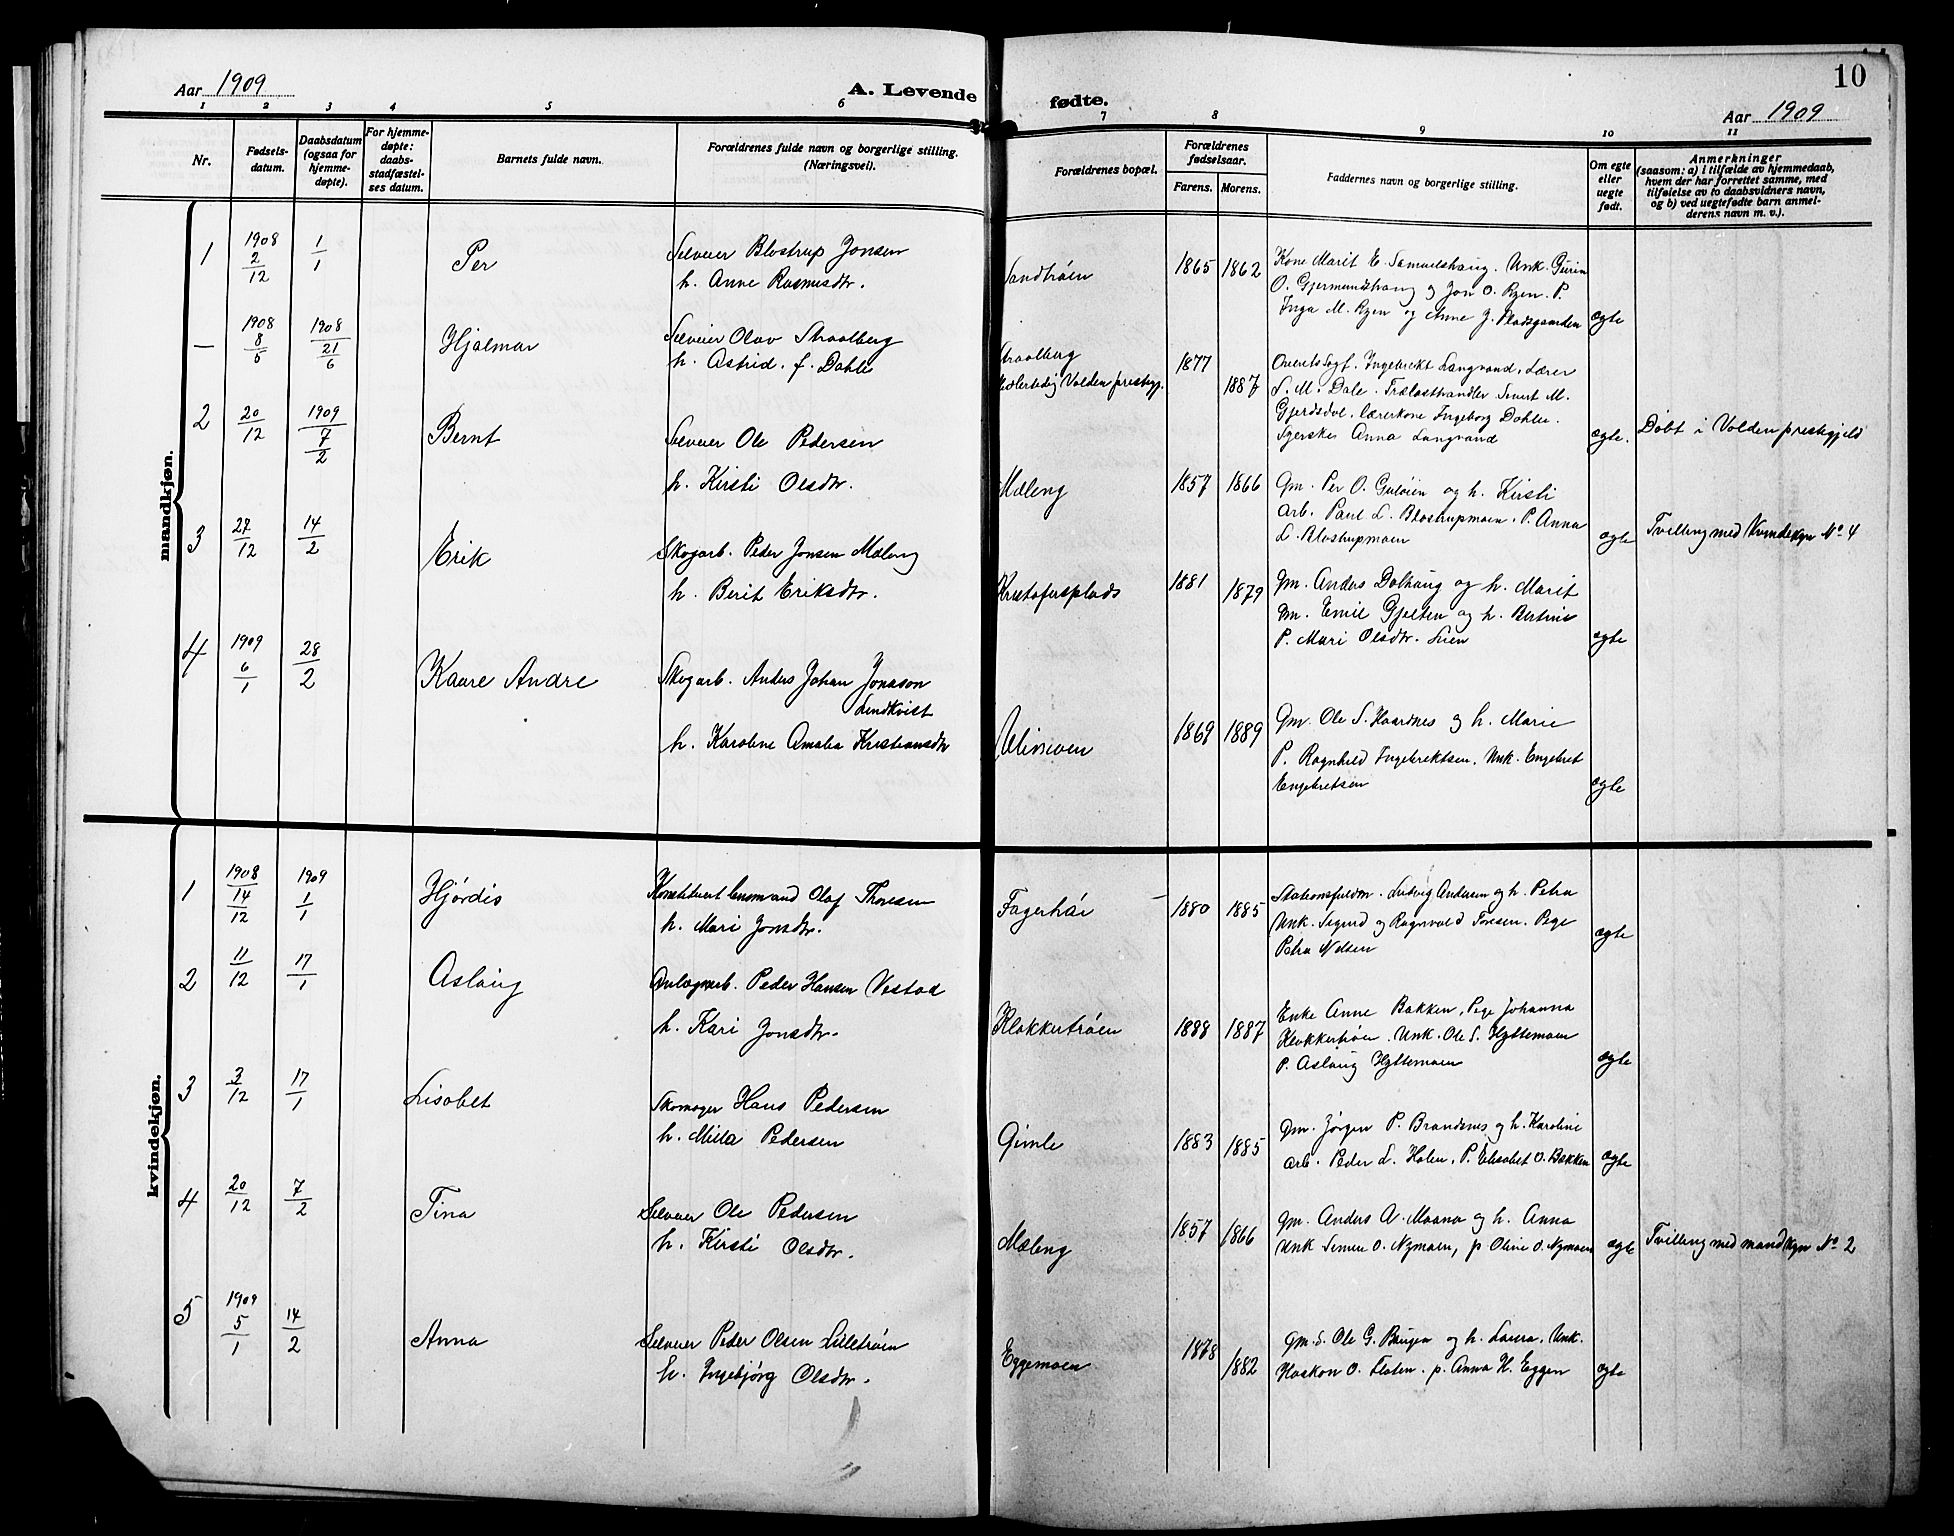 Aar 1909
A. Levende
1 2 3 4 5 6
Nr.
Fødsels-
datum.
Daabsdatum
(ogsaa for
hjemme-
døpte).
For hjemme-
døpte:
daabs-
stadfæstel-
ses datum.
Barnets fulde navn.
Forældrenes fulde navn og borgerlige stilling.
(Næringsvei).
mandkjøn.
1
1908
2
12
1
1
Per
Selveier Blostrup Jonsen
h. Anne Rasmusdtr.
—
1908
8
5
1908
21
6
Hjalmar
Selveier Olav Straalberg
h. Astrid. f. Dahle
2
20
12
1909
7
2
Bernt
Selveier Ole Pedersen
h. Kirsti Olsdtr.
3
27
12
14
2
Erik
Skogarb. Peder Jonsen Mæleng
h. Berit Eriksdtr.
4
1909
6
1
28
2
Kaare Andre
Skogarb. Anders Johan Jonason
Lindkvist
h. Karoline Amalia Kristiansdtr
kvindekjøn.
1
1908
14
12
1909
1
1
Hjørdis
Olaf Thoresen
h. Mari Jonsdtr.
2
11
12
17
1
Aslaug
Anlægsarb. Peder Hansen Vestad
h. Kari Jonsdtr.
3
3
12
17
1
Lisabet
Skomager Hans Pedersen
h. Milla Pedersen
4
20
12
7
2
Tina
Selveier Ole Pedersen
h. Kirsti Olsdtr.
5
1909
5
1
14
2
Anna
Selveier Peder Olsen Lilletrøen
h. Ingebjørg Olsdtr.
10
fødte.
Aar 1909
7 8 9 10 11
Forældrenes bopæl.
Forældrenes
fødselsaar.
Farens. Morens.
Faddernes navn og borgerlige stilling.
Om egte
eller
uegte
født.
Anmerkninger
(saasom: a) i tilfælde av hjemmedaab,
hvem der har forrettet samme, med
tilføielse av to daabsvidners navn,
og b) ved uegtefødte barn anmel-
derens navn m. v.).
Sandtrøen
1865 1862
Kone Marit E. Samuelshaug. Unk. Gurin
O. Gjermundshaug og Jon O. Ryen. P.
Inga M. Ryen og Anne J. Pladsgaarden
ægte
Straalberg
Midlertidig Volden prestegj.
1877
1887
Ingebrikt Langvand. Lærer
S. M. Dale. Trælasthandler Sivert M.
Gjerdsdal. Lærerkone Ingeborg Dahle.
Syerske Anna Langvand
ægte.
Døbt i Volden prestegjeld
Mæleng
1857 1866
Gm. Per O. Guløien og h. Kirsti
Arb. Paul L. Blostrupmoen. P. Anna
L. Blostrupmoen
ægte
Tvilling med Kvindekjn No 4
Kristofersplads
1881 1879
Gm. Anders Dalhaug og h. Marit
Gm. Emil Gjelten og h. Bertine
P. Mari Olsdtr. Lien
ægte
1869 1889
Gm. Ole S. Haardnes og h. Marie
P. Ragnhild Ingebrektsen. Unk. Engebret
Engebretsen
ægte
Fagerhår
1880 1885
Stationsfuldm. Ludvig Andersen og h. Petra
Unk. Sigurd og Ragnvald Toresen. Pige
Petra Nilsen
ægte
Klokkertrøen
1888 1887
Enke Anne Bakken, Pige Johanna
Klokkertrøen. Unk. Ole S. Hyttemoen
P. Aslaug Hyttemoen
ægte
Gimle
1883 1885
Gm. Jørgen P. Brandsnes og h. Karoline
Arb. Peder L. Holen, P. Elisabet O. Bakken
ægte
Mæleng
1857 1866
Gm. Anders A. Maana og h. Anna
Unk Simen O. Nymoen, p. Oline O. Nymoen
ægte
Tvilling med mandkjn No 2
Eggemoen
1878
1882
Gm. S. Ole G. Baugen og h. Laura, Unk.
Haakon O. Floten. p. Anna H. Eggen
ægte